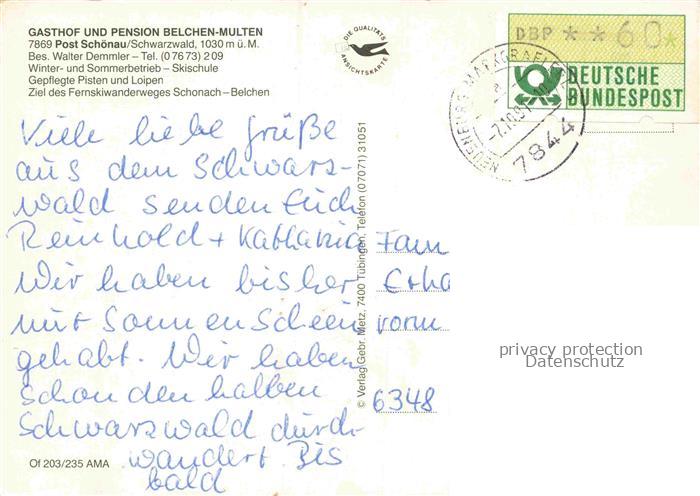 GASTHOF UND PENSION BELCHEN-MULTEN
7869 Post Schönau/Schwarzwald, 1030 m ü. M.
Bes. Walter Demmler – Tel. (07673) 209
Winter- und Sommerbetrieb – Skischule
Gepflegte Pisten und Loipen
Ziel des Fernskiwanderweges Schonach – Belchen
DIE QUALITÄTS
ANSICHTSKARTE
DBP * * 60 *
DEUTSCHE
BUNDESPOST
7844
Viele liebe Grüße
aus dem Schwarz-
wald senden Euch
Reinhold + Katharina
Wir haben bisher
nur Sonnenschein
gehabt. Wir haben
schon den halben
Schwarzwald durch-
wandert. Bis
bald
© Verlag Gebr. Metz, 7400 Tübingen, Telefon (07071) 31051
Fam
Erha
vorm
6348
privacy protection
Datenschutz
Of 203/235 AMA